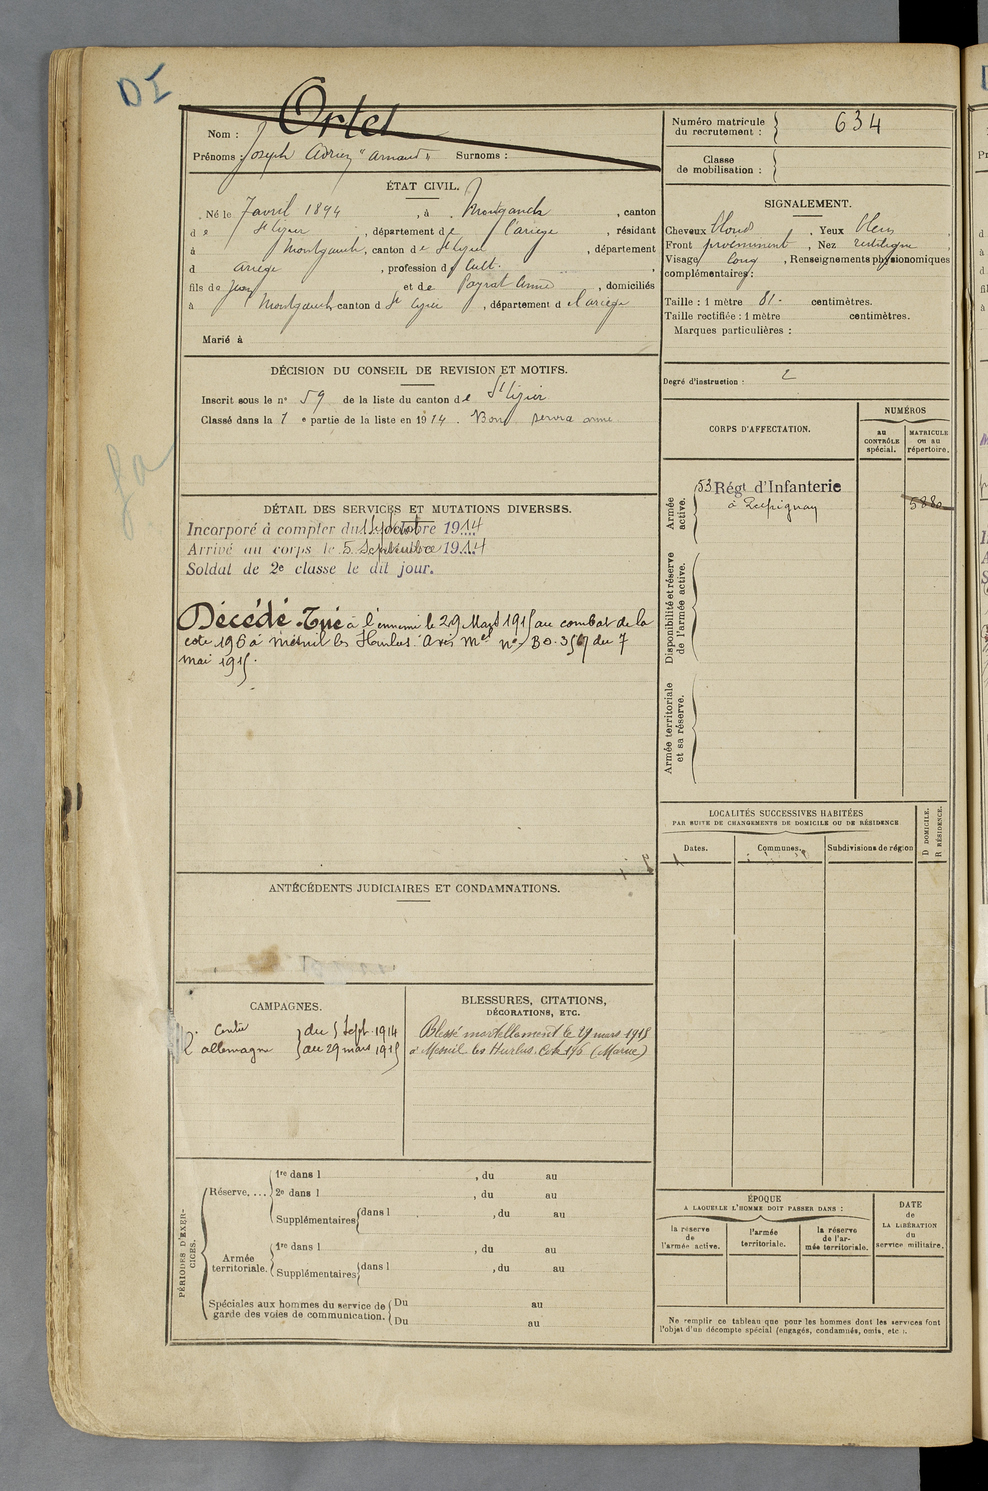 DI
Nom : Ortet
Prénoms : Joseph Adrien "Arnaud" Surnoms :
Numéro matricule du recrutement : 634
Classe de mobilisation :
ÉTAT CIVIL.
Né le 7 avril 1894, à Montgauch, canton
de St Lizier, département de l'ariège, résidant
à Montgauch, canton de St Lizier, département
d ariège, profession d Cult.
fils de Jean et de Peyrat Anne, domiciliés
à Montgauch canton d St Lizier, département d l'ariège
Marié à
SIGNALEMENT.
Cheveux blond, Yeux bleus,
Front proéminent, Nez rectiligne,
Visage long, Renseignements physionomiques
complémentaires :
Taille : 1 mètre 81 - centimètres.
Taille rectifiée : 1 mètre centimètres.
Marques particulières :
Degré d'instruction : 2
DÉCISION DU CONSEIL DE REVISION ET MOTIFS.
Inscrit sous le n° 59 de la liste du canton de St Lizier
Classé dans la 1 e partie de la liste en 1914. Bon service armé
DÉTAIL DES SERVICES ET MUTATIONS DIVERSES.
Incorporé à compter du octobre 1914
Arrivé au corps le 5 Septembre 1914
Soldat de 2e classe le dit jour.
Décédé. Tué à l'ennemi le 29 Mars 1915 au combat de la
cote 196 à Mesnil les Hurlus. Avis Mel no BO. du 7
mai 1915.
CORPS D'AFFECTATION.
NUMÉROS
au CONTRÔLE spécial.
MATRICULE ou au répertoire.
Armée active.
53 Régt d'Infanterie
à Perpignan
Disponibilité et réserve de l'armée active.
Armée territoriale et sa réserve.
LOCALITÉS SUCCESSIVES HABITÉES
PAR SUITE DE CHANGEMENTS DE DOMICILE OU DE RÉSIDENCE
Dates.
Communes.
Subdivisions de région
D DOMICILE.
R RÉSIDENCE.
ANTÉCÉDENTS JUDICIAIRES ET CONDAMNATIONS.
CAMPAGNES.
Contre du 5 Sept. 1914
l'allemagne au 29 mars 1915
BLESSURES, CITATIONS,
DÉCORATIONS, ETC.
Blessé mortellement le 29 mars 1915
à Mesnil les Hurlus. Cote 196 (Marne)
PÉRIODES D'EXERCICES.
Réserve....
1re dans l , du au
2e dans l , du au
Supplémentaires dans l , du au
Armée territoriale.
1re dans l , du au
Supplémentaires dans l , du au
Spéciales aux hommes du service de
garde des voies de communication.
Du au
Du au
ÉPOQUE
A LAQUELLE L'HOMME DOIT PASSER DANS :
la réserve de l'armée active.
l'armée territoriale.
la réserve de l'armée territoriale.
DATE
de
LA LIBÉRATION
du
service militaire.
Ne remplir ce tableau que pour les hommes dont les services font
l'objet d'un décompte spécial (engagés, condamnés, omis, etc.).